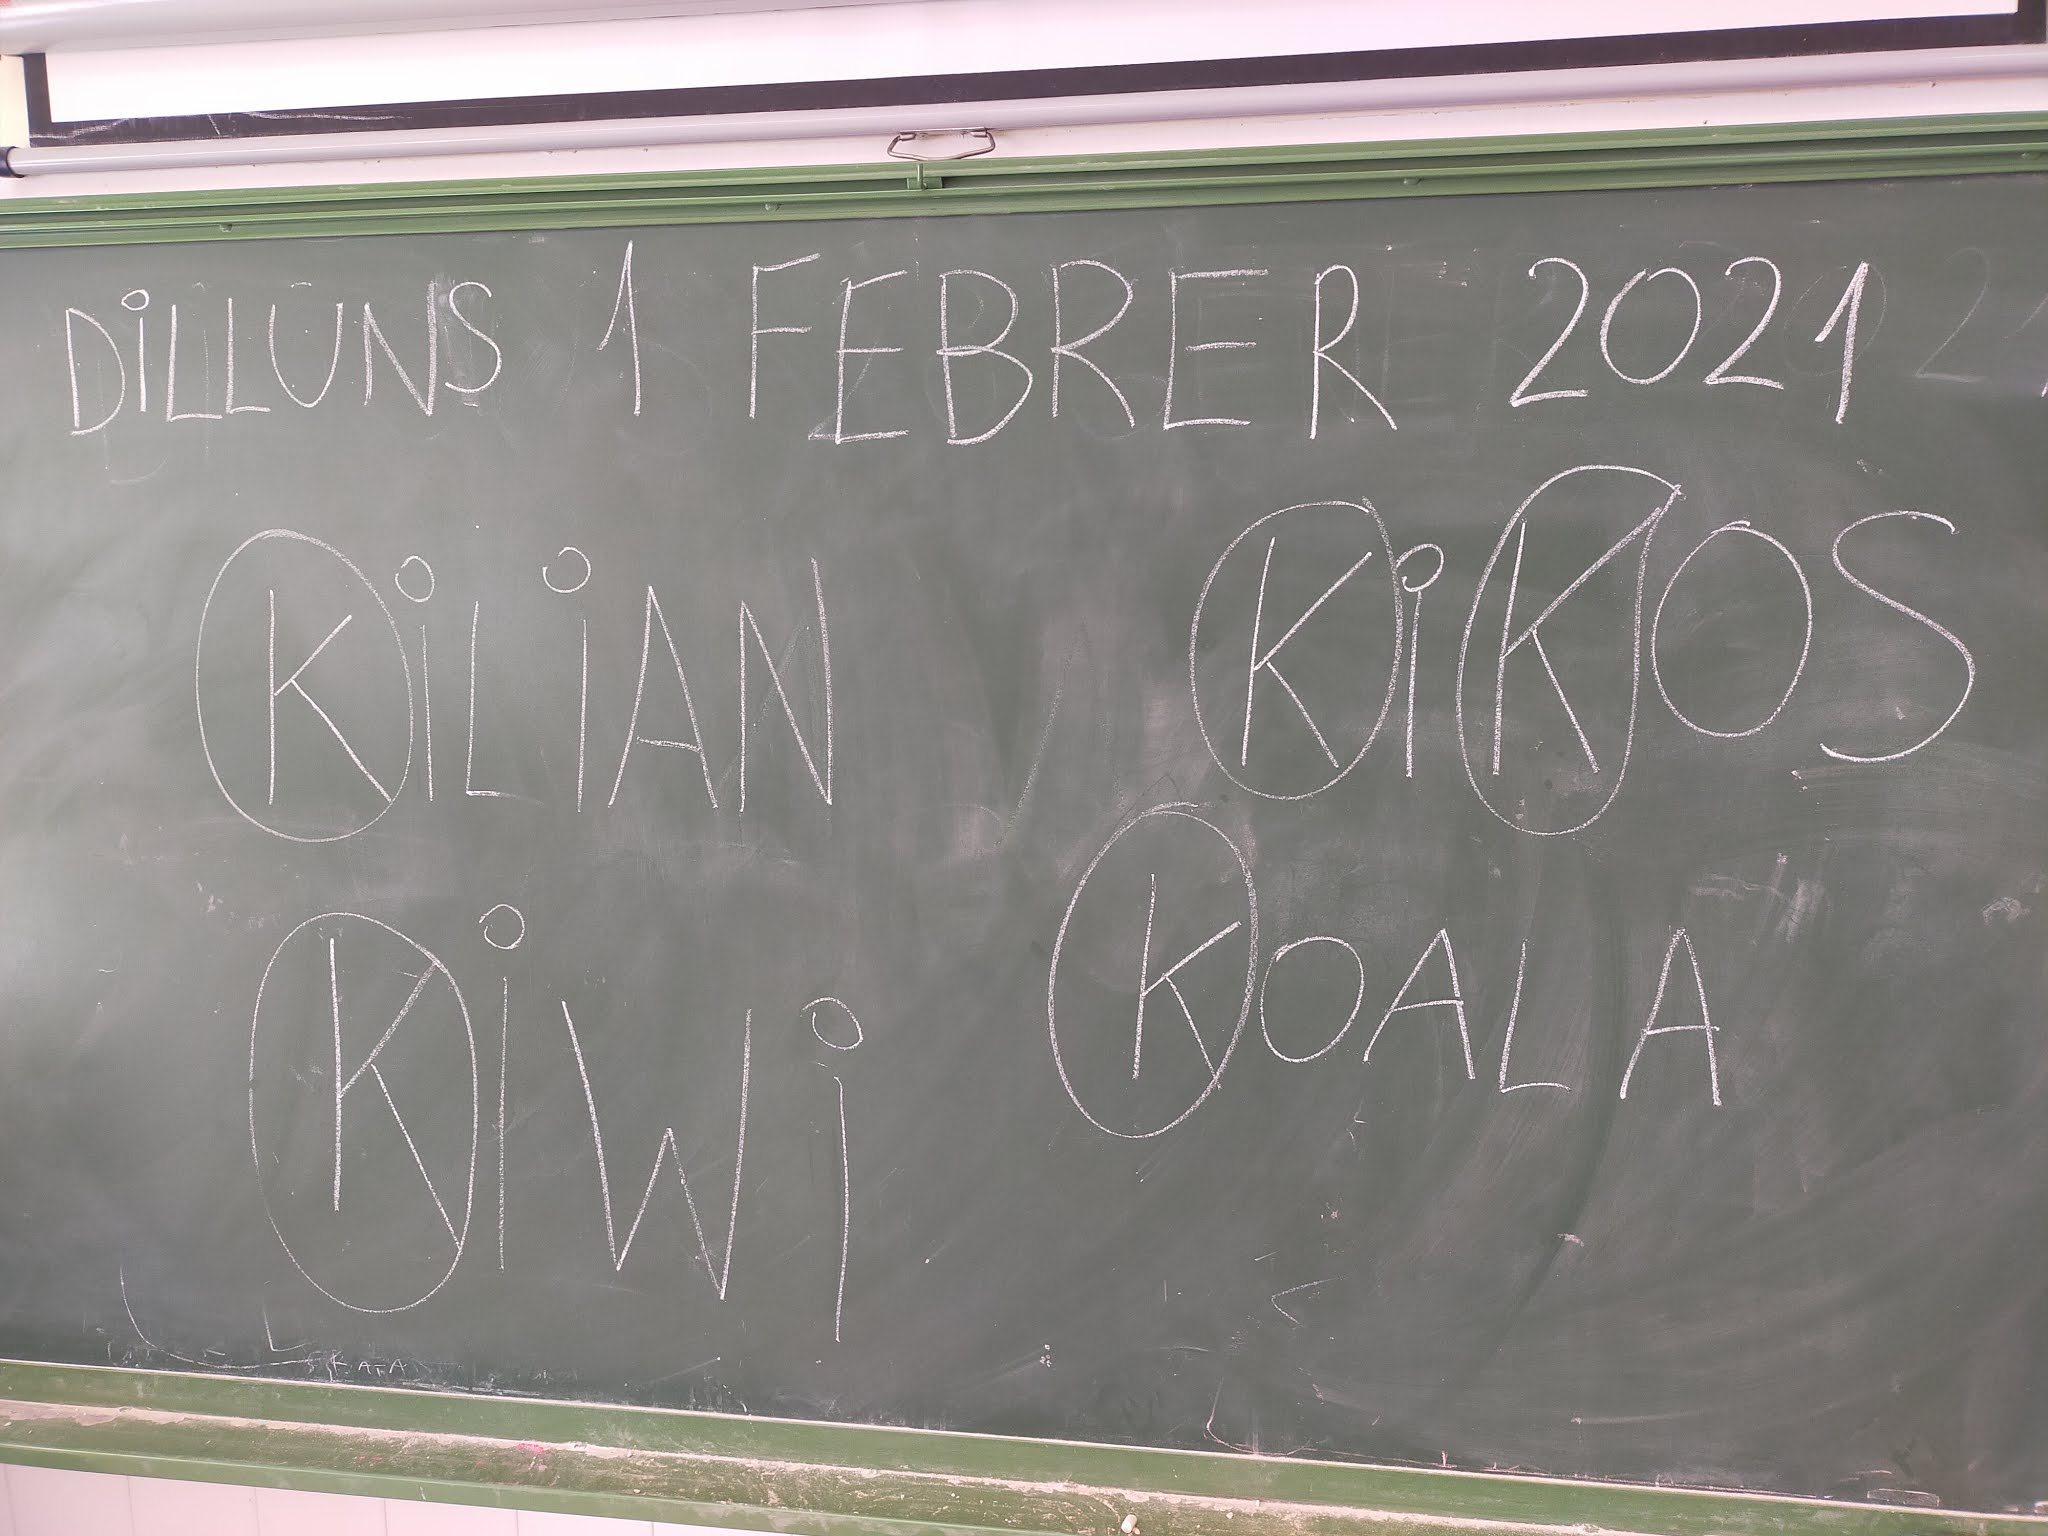 DiLLUNS 1 FEBRER 2021
KiLiAN KiKOS
KiWi KOALA